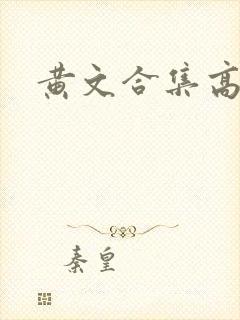 黄文合集高
秦皇